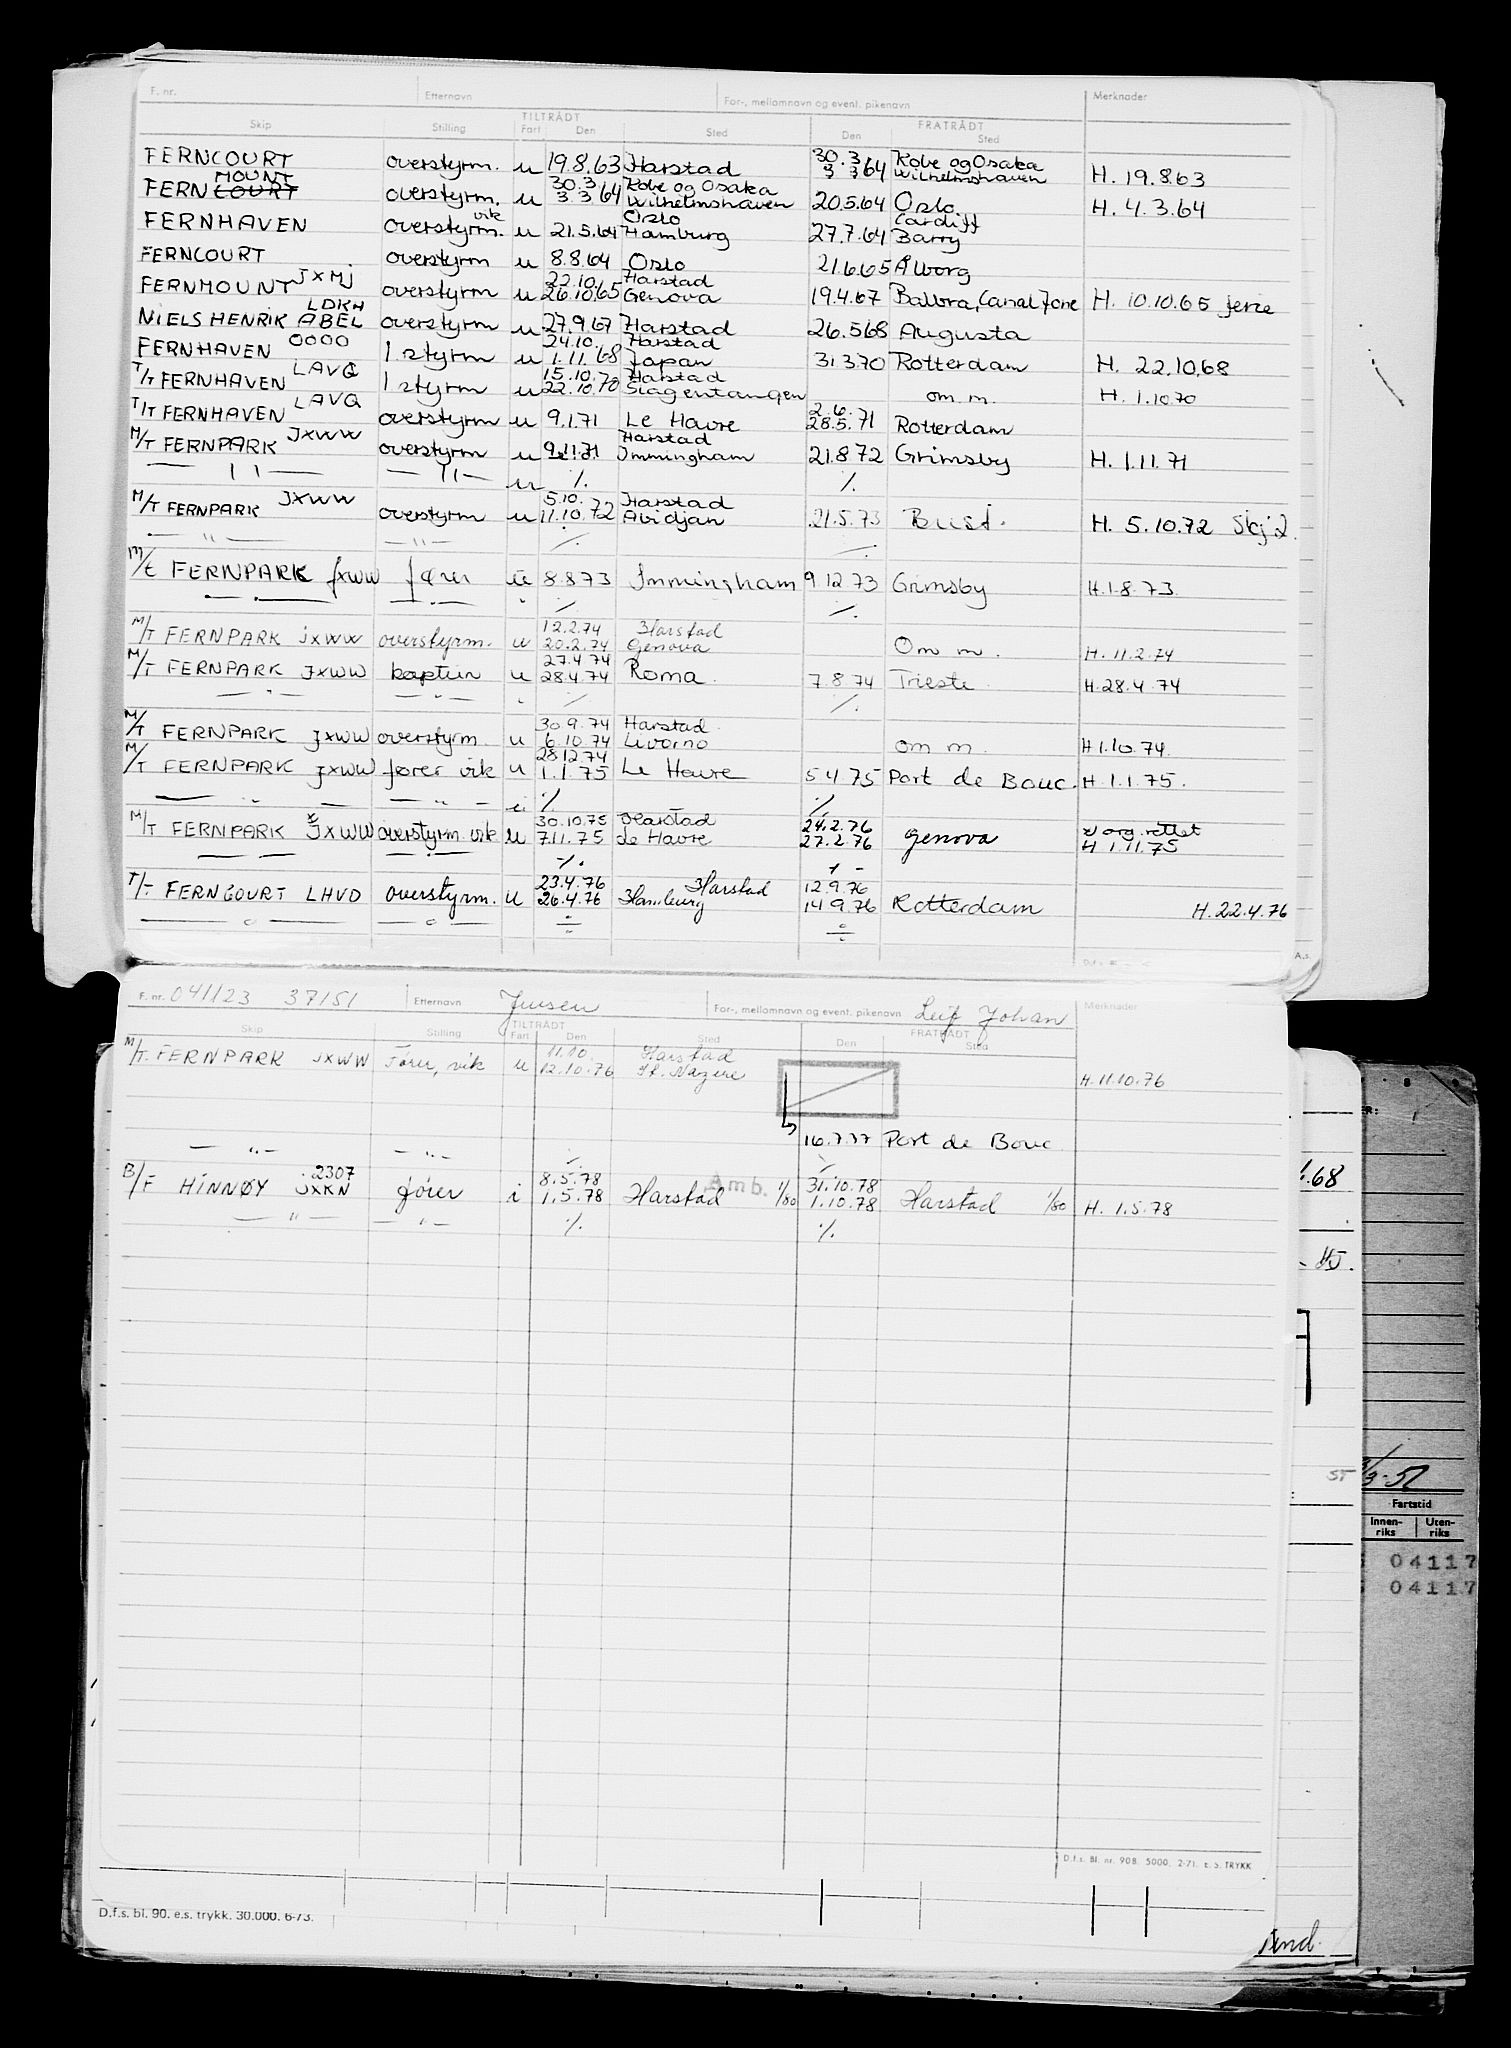 F. nr. Etternavn For-, mellomnavn og eventl. pikenavn Merknader
Skip Stilling TILTRÅDT FRATRÅDT
Fart Den Sted Den Sted
FERNCOURT overstyrm. u 19.8.63 Harstad 30.3 3 3 64 Kobe og Osaka Wilhelmshaven H. 19.8.63
MOUNT
FERN COURT overstyrm. u 30.3 3.3 64 Kobe og Osaka Wilhelmshaven 20.5.64 Oslo H. 4.3.64
FERNHAVEN overstyrm. vik u 21.5.64 Oslo Hamburg 27.7.64 Cardiff Barry
FERNCOURT overstyrm u 8.8.64 Oslo 21.6.65 Ålborg
FERNMOUNT JXMJ overstyrm u 22.10. 26.10.65 Harstad Genova 19.4.67 Balbra, Canal Zone H. 10.10.65 ferie
NIELS HENRIK ABEL LDKH overstyrm u 27.9.67 Harstad 26.5.68 Augusta
FERNHAVEN OOOO 1 styrm u 24.10. 1.11.68 Harstad Japan 31.3.70 Rotterdam H. 22.10.68
T/T FERNHAVEN LAVQ 1 styrm u 15.10.70 22.10.70 Harstad Slagentangen om m. H. 1.10.70
T/T FERNHAVEN LAVQ overstyrm u 9.1.71 Le Havre 2.6.71 28.5.71 Rotterdam
M/T FERNPARK JXWW overstyrm u 9.11.71 Harstad Immingham 21.8.72 Grimsby H. 1.11.71
— " — — " — u ./. ./.
M/T FERNPARK JXWW overstyrm u 5.10. 11.10.72 Harstad Avidjan 21.5.73 H. 5.10.72 Skj 2.
— " — — " — ./. ./.
M/T FERNPARK JXWW fører u 8.8.73 Immingham 9.12.73 Grimsby H.1.8.73.
— " — — " — ./. ./.
M/T FERNPARK JXWW overstyrm. u 12.2.74 20.2.74 Harstad Genova Om m. H. 11.2.74
M/T FERNPARK JXWW kaptein u 27.4.74 28.4.74 Roma. 7.8.74 Trieste H.28.4.74
— " — — " — ./. ./.
M/T FERNPARK JXWW overstyrm. u 30.9.74 6.10.74 Harstad. Livorno om m. H 1.10.74.
M/T FERNPARK JXWW fører vik u 28.12.74 1.1.75 Le Havre 5.4.75 Port de Bouc. H. 1.1.75.
— " — — " — ./. ./.
M/T FERNPARK JXWW overstyrm. vik u 30.10.75 7.11.75 Harstad Le Havre 24.2.76 27.2.76 Genova org. rettet H 1.11.75
— " — — " — ./.
T/T FERNCOURT LHVD overstyrm. u 23.4.76 26.4.76 Harstad Hamburg 12.9.76 14.9.76 Rotterdam H. 22.4.76
— " — — " —
F. nr. 041123 37151 Etternavn Jensen For-, mellomnavn og eventl. pikenavn Leif Johan Merknader
Skip Stilling TILTRÅDT FRATRÅDT
Fart Den Sted Den Sted
M/T. FERNPARK JXWW Fører, vik u 11.10. 12.10.76 Harstad St. Nazere H. 11.10.76
— " — — " — ./. 16.7.77 Port de Bouc
B/F HINNØY 2307 JXKN fører i 8.5.78 1.5.78 Harstad Amb. 1/80 31.10.78 1.10.78 Harstad 1/80 H. 1.5.78
— " — — " — ./. ./.
D.f.s. Bl. nr. 90B. 5000. 2-71. E. S. TRYKK
D.f.s. bl. 90. e.s. trykk. 30.000. 6-73.
.68
ST
/3-51
Fartstid
Innen-riks Uten-riks
04117
04117